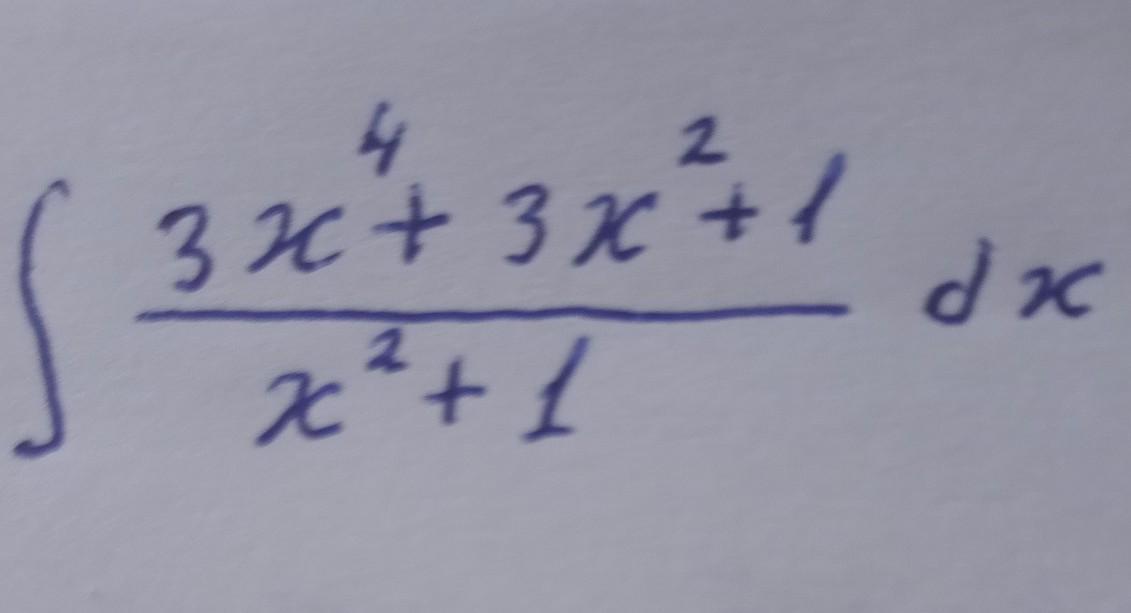 ∫ (3x⁴ + 3x² + 1) / (x² + 1) dx